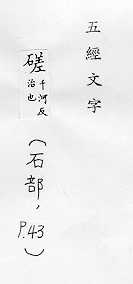 五經文字
磋千河反治也
(石部,P.43)